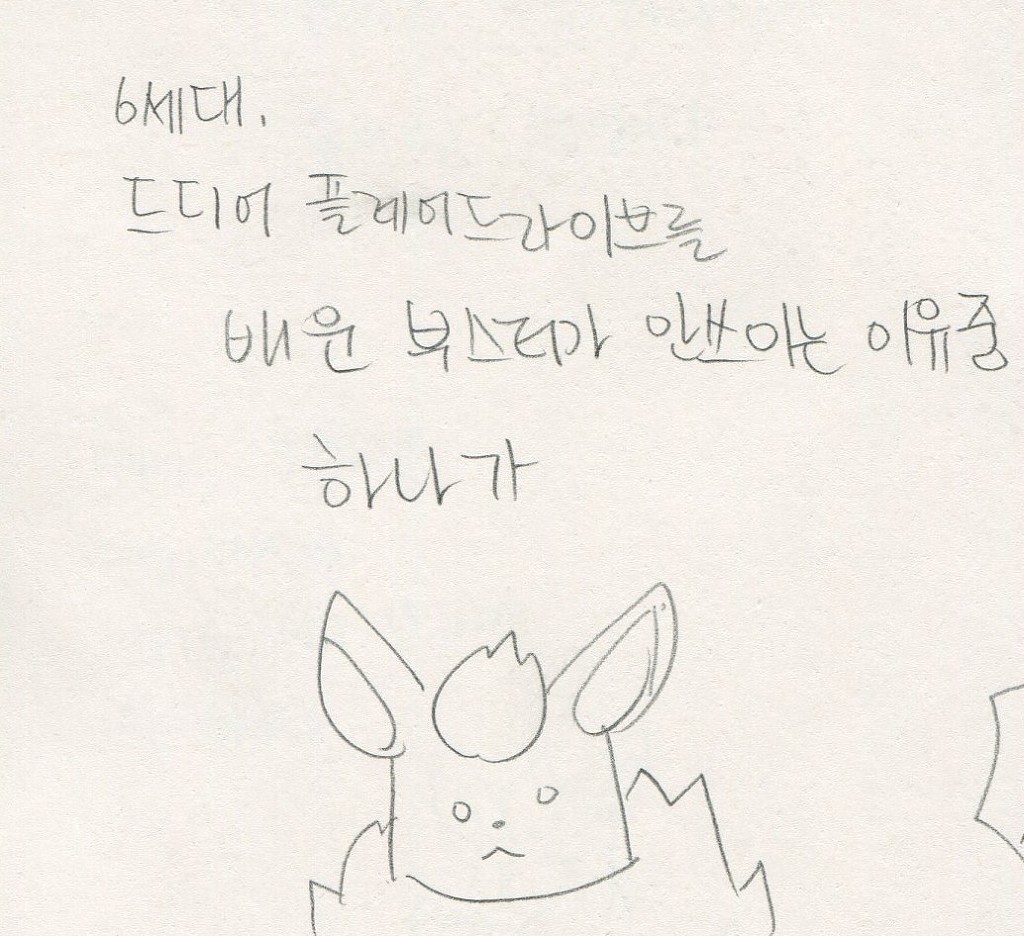 6세대.
드디어 플레어드라이브를
배운 부스터가 안쓰이는 이유중
하나가